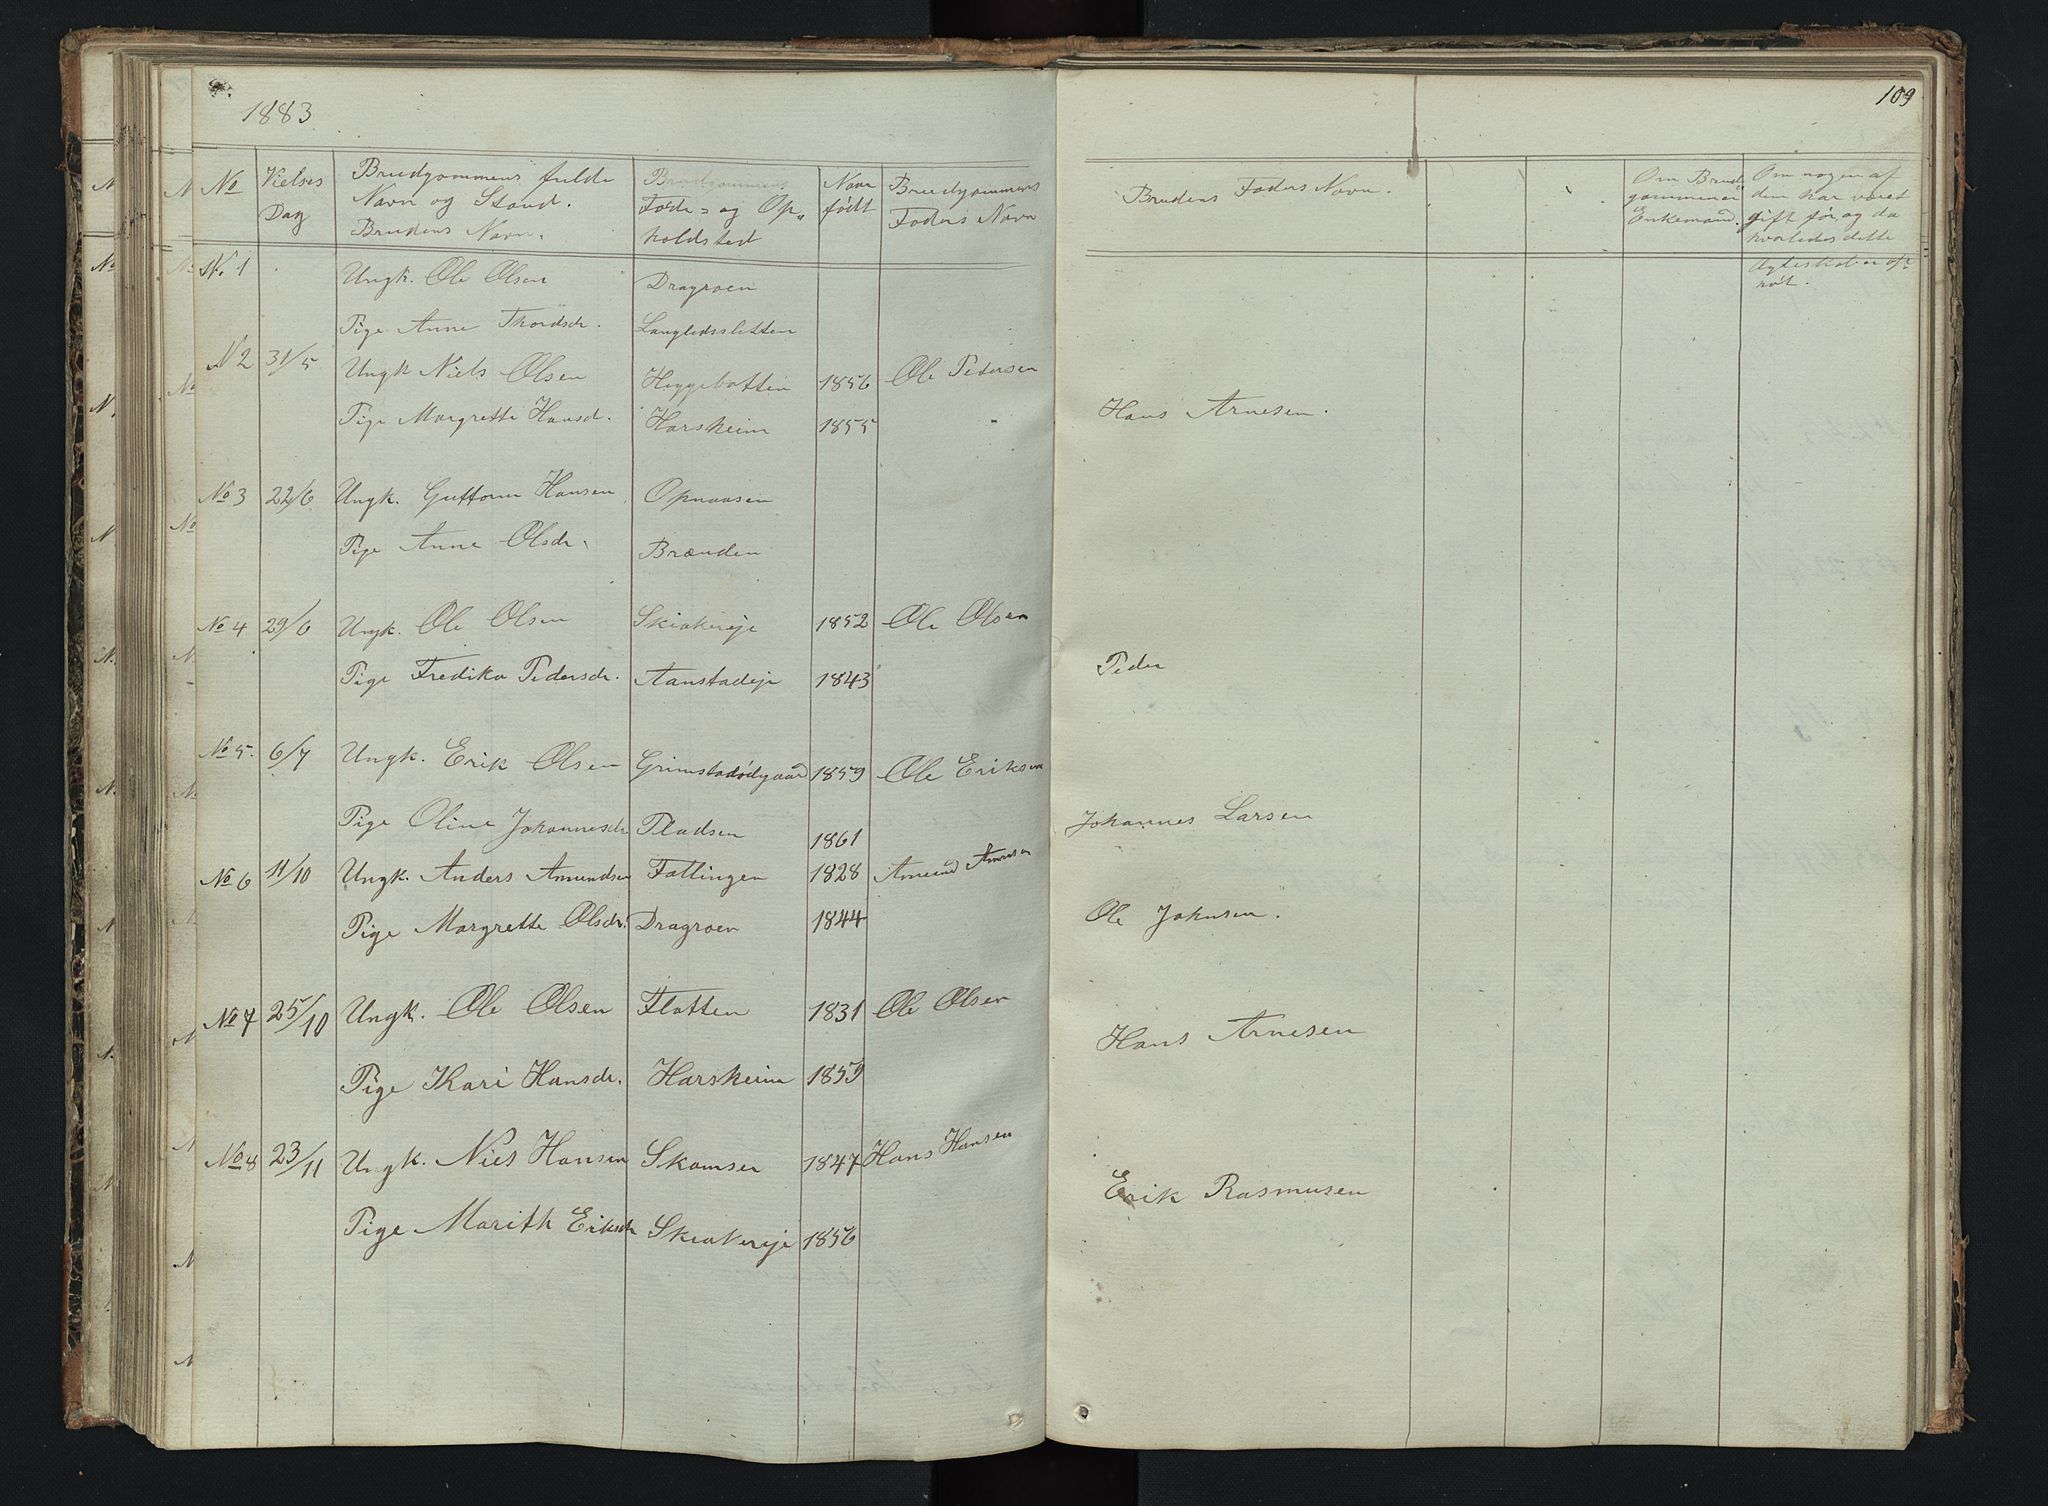 1883
109
No
Vielses Dag
Brudgommens fulde Navn og Stand. Brudens Navn.
Brudgommens Føde= og Opholdsted
Naar født
Brudgommens Faders Navn
Brudens Faders Navn.
Om Brudgommen er Enkemand.
Om nogen af dem har været gift før, og da hvorledes dette Ægteskab er ophørt.
No 1 Ungk. Ole Olsen Dragroen
Pige Anne Thordsdr. Langledssletten
No 2 31/5 Ungk Niels Olsen Heggebotten 1856 Ole Pedersen
Pige Margrette Hansd. Harsheim 1855 Hans Arnesen.
No 3 22/6 Ungk. Guttorm Hansen Opnaasen
Pige Anne Olsdr. Brænden
No 4 29/6 Ungk. Ole Olsen Skiakereje 1852 Ole Olsen
Pige Fredika Pedersdr. Aanstadeje 1843 Peder
No 5. 6/7 Ungk. Erik Olsen Grimstadødgaard 1859 Ole Eriksen
Pige Oline Johannesdr Pladsen 1861 Johannes Larsen
No 6 11/10 Ungk. Anders Amundsen Fattingen 1828 Amund
Pige Margrette Olsdr. Dragroen 1844 Ole Johnsen.
No 7 25/10 Ungk. Ole Olsen Flatten 1831 Ole Olsen
Pige Kari Hansdr. Harsheim 1859 Hans Arnesen
No 8 23/11 Ungk. Niels Hansen Skamser 1847 Hans Hansen
Pige Marith Eriksdr Skiakereje 1856 Erik Rasmusen